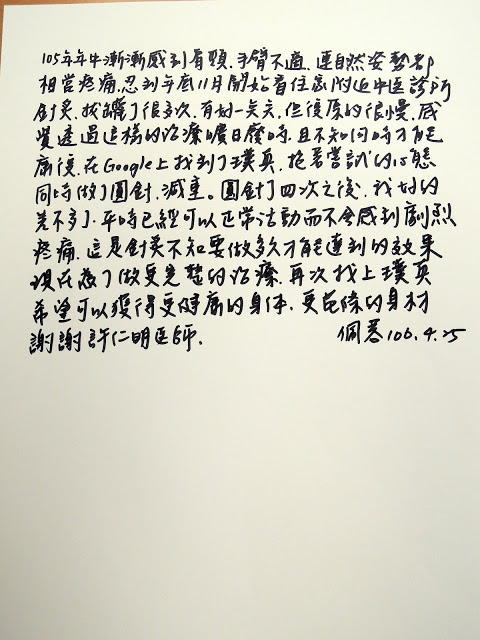 105年年中漸漸感到肩頸、手臂不適、連自然姿勢都
相當疼痛,忍到年底11月開始看住家附近中医診所
針灸、拔罐了很多次,有好一点点,但復原的很慢,感
覺透過這樣的治療曠日廢時,且不知何時才能
康復,在Google上找到了璞真,抱著嘗試的心態
同時做了圓針、減重。圓針了四次之後,我好的
差不多了,平時已經可以正常活動而不會感到劇烈
疼痛,這是針灸不知要做多久才能達到的效果
現在為了做更完整的治療,再次找上璞真
希望可以獲得更健康的身体、更苗條的身材
謝謝許仁明医師. 佩蓉106.4.25